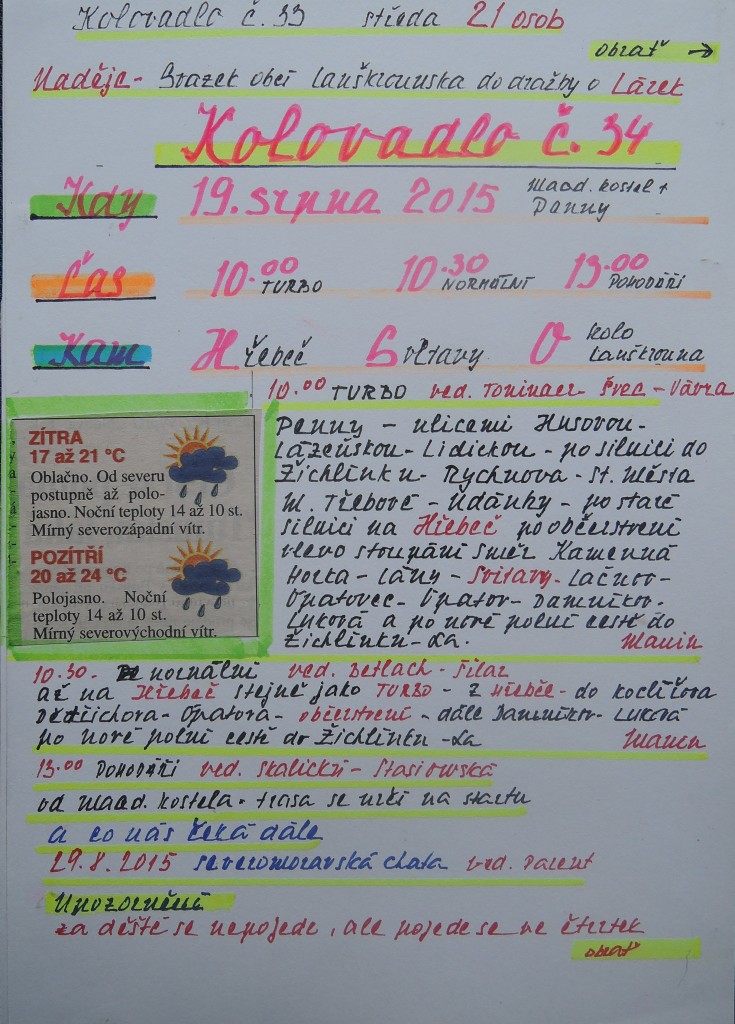 Kolovadlo č. 33 středa 21 osob
obrať →
Naděje - Svazek obcí Lanškrounska do dražby o Lázek
Kolovadlo č. 34
Kdy 19. srpna 2015 Maad. kostel +
Panny
Čas 10.00 TURBO 10.30 NORMÁLNÍ 13.00 POHODÁŘI
Kam Hřebeč Svitavy O kolo
Lanškrouna
10.00 TURBO ved. Švec - Vávra
Panny - ulicemi Husovou -
Lázeňskou - Lidickou - po silnici do
Žichlínku - Rychnova - St. Města
M. Třebové - Údánky - po staré
silnici na Hřebeč po občerstvení
vlevo stoupání směr Kamenná
Horka - Lány - Svitavy - Lačnov -
Opatovec - Opatov - Damníkov -
Luková a po nové polní cestě do
Žichlínku - La.
ZÍTRA
17 až 21 °C
Oblačno. Od severu
postupně až polo-
jasno. Noční teploty 14 až 10 st.
Mírný severozápadní vítr.
POZÍTŘÍ
20 až 24 °C
Polojasno. Noční
teploty 14 až 10 st.
Mírný severovýchodní vítr.
10.30 - normální ved. Betlach - Filar
až na Hřebeč stejně jako TURBO - z Hřebče - do Koclířova
Dětřichova - Opatova - občerstvení - dále Damníkov - Luková
po nové polní cestě do Žichlínku - La
13.00 POHODÁŘI ved. Skalický - Stasiowská
od Maad. kostela - trasa se určí na startu
a co nás čeká dále
29.8.2015 severomoravská chata ved. Parent
Upozornění
za deště se nepojede, ale pojede se ve čtvrtek
obrať